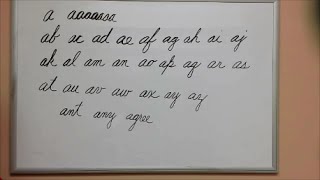 a aaaaaaa
ab ac ad ae af ag ah ai aj
ak al am an ao ap aq ar as
at au av aw ax ay az
ant any agree